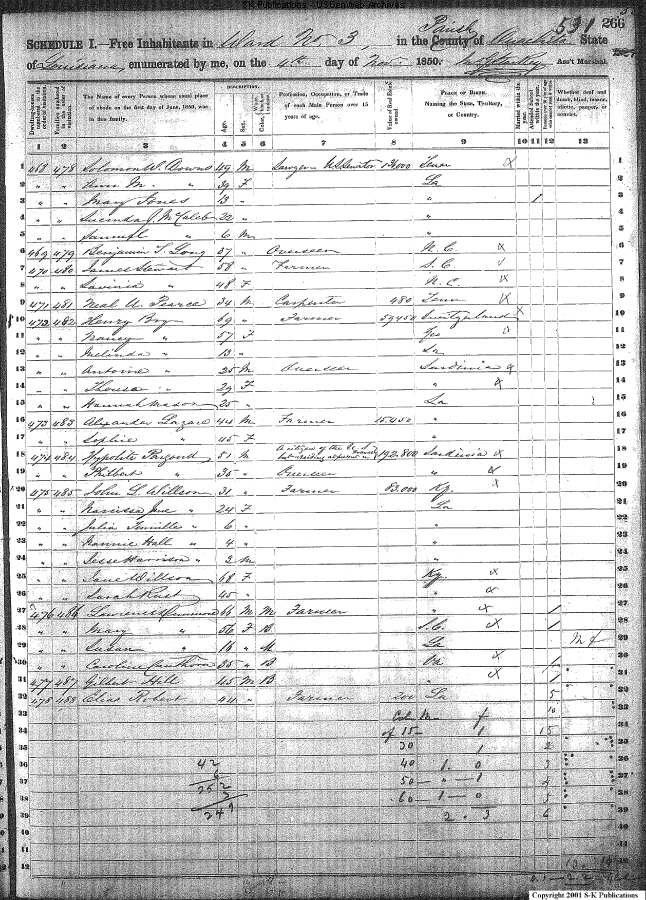 S-K Publications - USGenWeb Archives
531 266
SCHEDULE I.—Free Inhabitants in Ward No 3, in the Parish County of Ouachita State
of Louisiana, enumerated by me, on the 4th day of Nov. 1850. Ass't Marshal.
Dwelling-houses numbered in the order of visitation.
Families numbered in the order of visitation.
The Name of every Person whose usual place of abode on the first day of June, 1850, was in this family.
DESCRIPTION.
Age.
Sex.
Color, White, black, or mulatto.
Profession, Occupation, or Trade of each Male Person over 15 years of age.
Value of Real Estate owned.
PLACE OF BIRTH. Naming the State, Territory, or Country.
Married within the year.
Attended School within the year.
Persons over 20 y'rs of age who cannot read & write.
Whether deaf and dumb, blind, insane, idiotic, pauper, or convict.
1 2 3 4 5 6 7 8 9 10 11 12 13
1 468 478 Solomon W. Downs 49 M Lawyer U.S. Senator Tenn X 1
2 " " Ann M. " 39 F La 2
3 " " Mary Jones 13 " " 1 3
4 " " Lucinda J. McCaleb 22 " " 4
5 " " Samuel " 6 M " 5
6 469 479 Benjamin T. Long 37 " Overseer N. C. X 6
7 470 480 James Stewart 58 " Farmer S. C. 7
8 " " Lavinia " 48 F N. C. X 8
9 471 481 Neal A. Pearce 34 M Carpenter 480 Tenn X 9
10 472 482 Henry Bry 69 " Farmer 59450 Switzerland X 10
11 " " Nancy " 57 F Geo X 11
12 " " Melinda " 13 " La 12
13 " " Antoine " 25 M Overseer Sardinia X 13
14 " " Theresa " 29 F " X 14
15 " " Hannah Mason 25 " La 15
16 473 483 Alexander Lazare 44 M Farmer 15.450 " 16
17 " " Sophie " 45 F " 17
18 474 484 Hypolite Pargoud 51 M A citizen of the U.S. but residing at present in France 192.800 Sardinia X 18
19 " " Philbert " 35 " Overseer " X 19
20 475 485 John L. Willson 31 " Farmer 83.000 Ky. X 20
21 " " Narcissa Jane " 24 F La 21
22 " " Julia " 6 " " 22
23 " " Nannie Hall " 4 " " 23
24 " " Jesse Harrison " 2 M " 24
25 " " Jane Willson 68 F Ky. X 25
26 " " Sarah Rust 45 " " X 26
27 476 486 Lawrence 66 M M Farmer " X 1 27
28 " " Mary " 56 F B S. C. X 1 28
29 " " Susan " 16 " M La 29
30 " " Caroline 35 " B X 1 30
31 477 487 Gilbert Hill 45 M B " X 1 31
32 478 488 Elias Robert 44 " Farmer 200 La 5 32
33 Col. M f 10 33
34 of 15- 1 15 34
35 30 1 2 35
36 42 40 1. 0 3 36
37 6 50 — " — 1 4 37
38 252 60 — 1 — 0 3 38
39 249 2. 3 6 39
40 40
41 41
42 42
Copyright 2001 S-K Publications